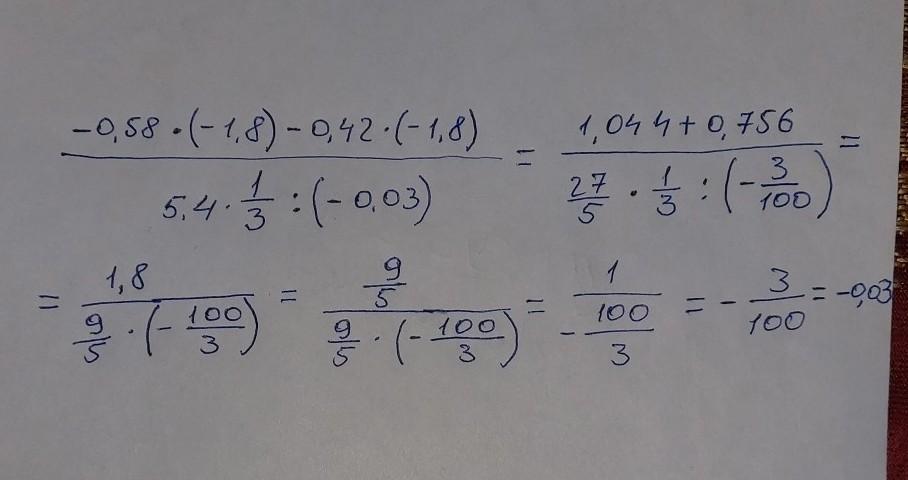 (-0,58·(-1,8)-0,42·(-1,8))/(5,4·1/3:(-0,03)) = (1,044+0,756)/(27/5·1/3:(-3/100)) =
= 1,8/(9/5·(-100/3)) = (9/5)/(9/5·(-100/3)) = 1/(-100/3) = -3/100 = -0,03